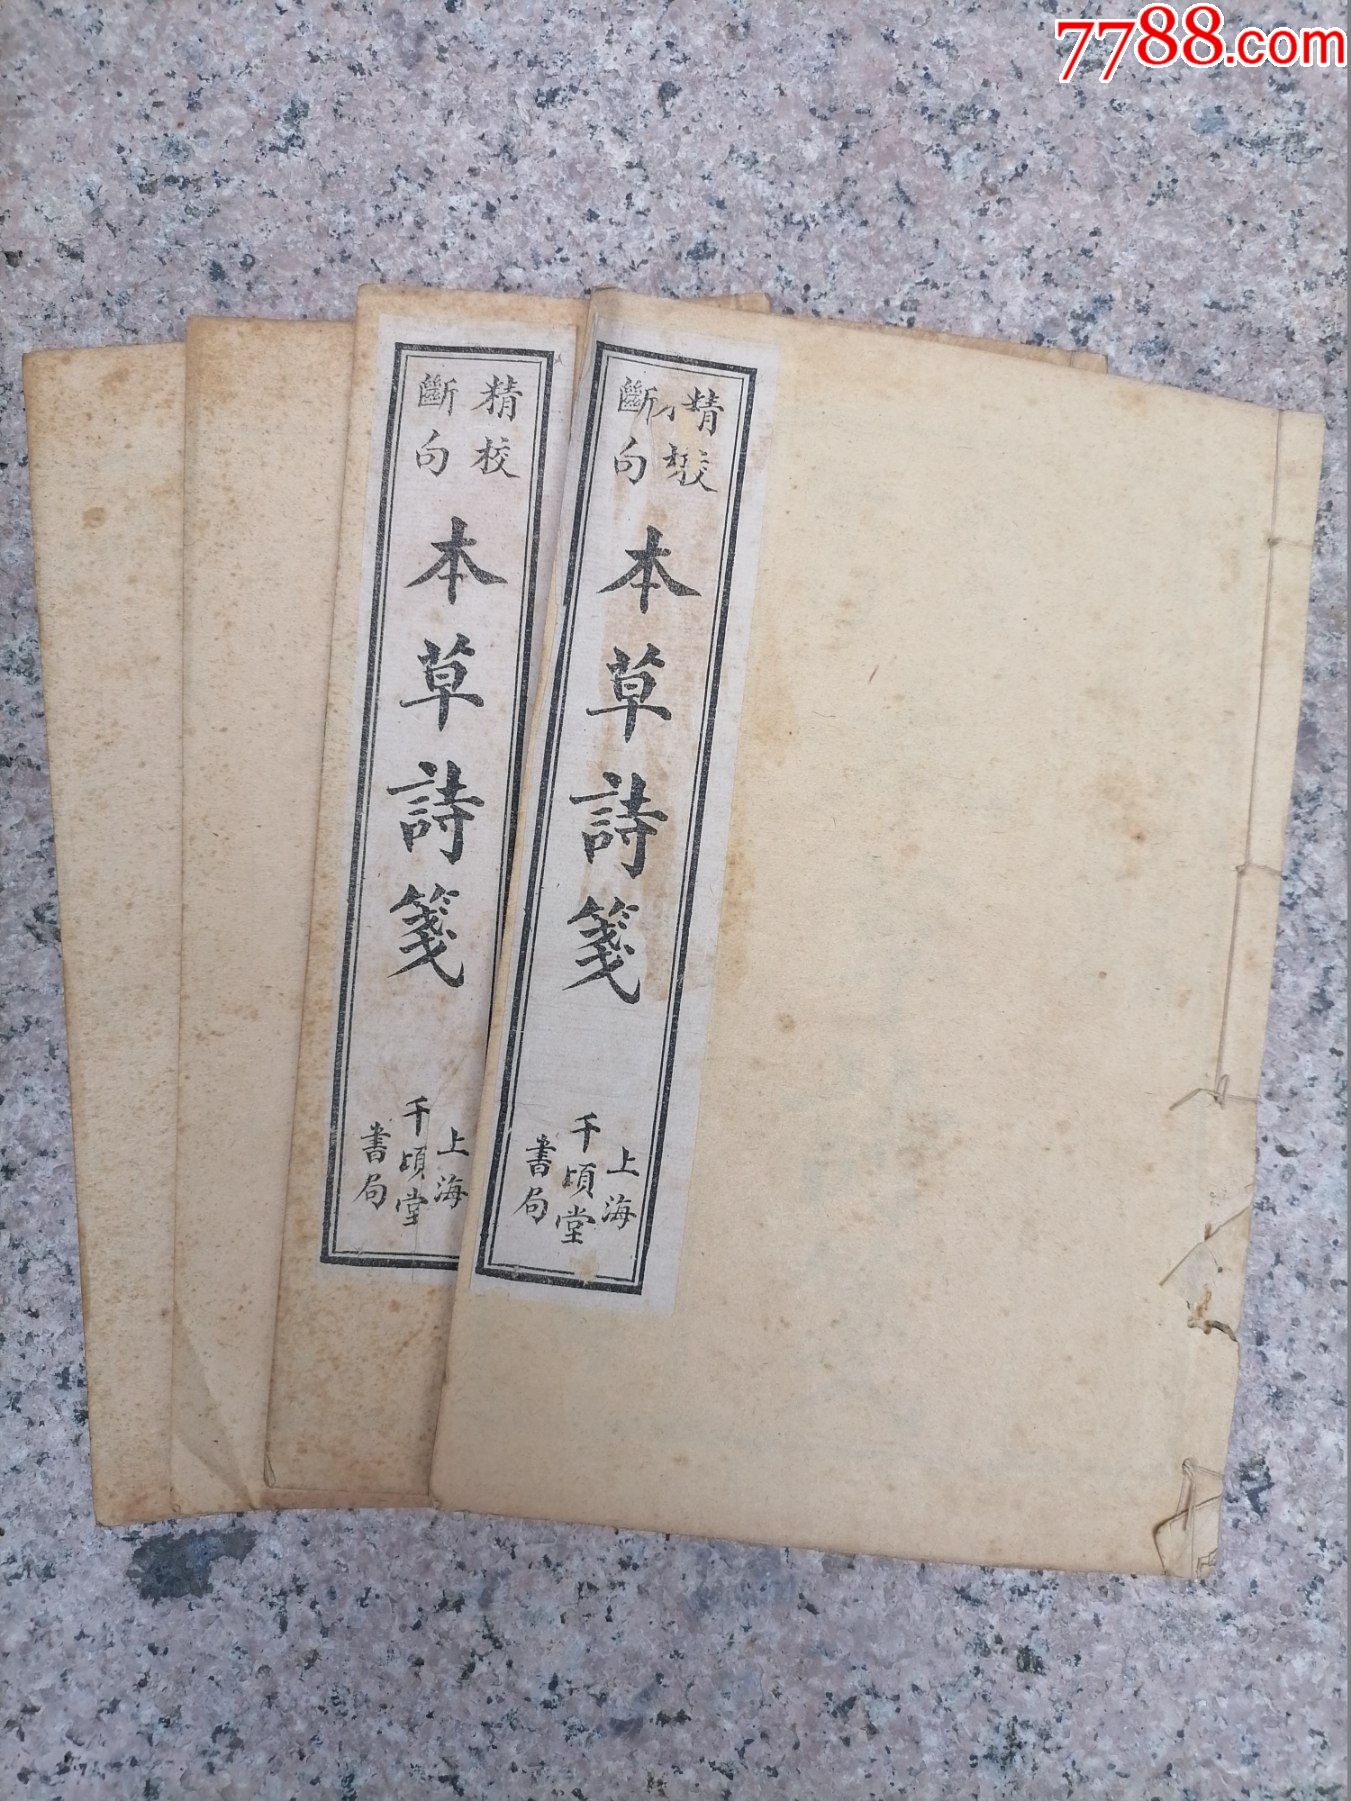 7788.com
精校
斷句
本草詩箋
上海
千頃堂
書局
精校
斷句
本草詩箋
上海
千頃堂
書局